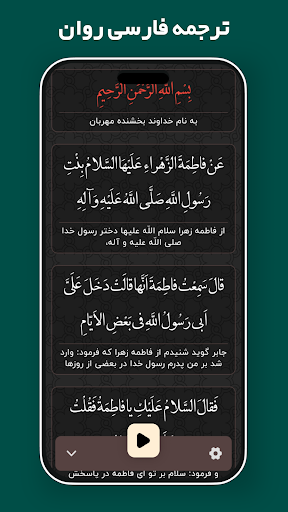 ترجمه فارسی روان
بِسْمِ اللَّهِ الرَّحْمَنِ الرَّحِيمِ
به نام خداوند بخشنده مهربان
عَنْ فاطِمَةَ الزَّهْراءِ عَلَيْهَا السَّلامُ بِنْتِ
رَسُولِ اللَّهِ صَلَّى اللَّهُ عَلَيْهِ وَآلِهِ
از فاطمه زهرا سلام الله علیها دختر رسول خدا
صلی الله علیه و آله،
قالَ سَمِعْتُ فاطِمَةَ أَنَّها قالَتْ دَخَلَ عَلَيَّ
أَبي رَسُولُ اللَّهِ في بَعْضِ الْأَيّامِ
جابر گوید شنیدم از فاطمه زهرا که فرمود: وارد
شد بر من پدرم رسول خدا در بعضی از روزها
فَقالَ السَّلامُ عَلَيْكِ يا فاطِمَةُ فَقُلْتُ
و فرمود: سلام بر تو ای فاطمه در پاسخش